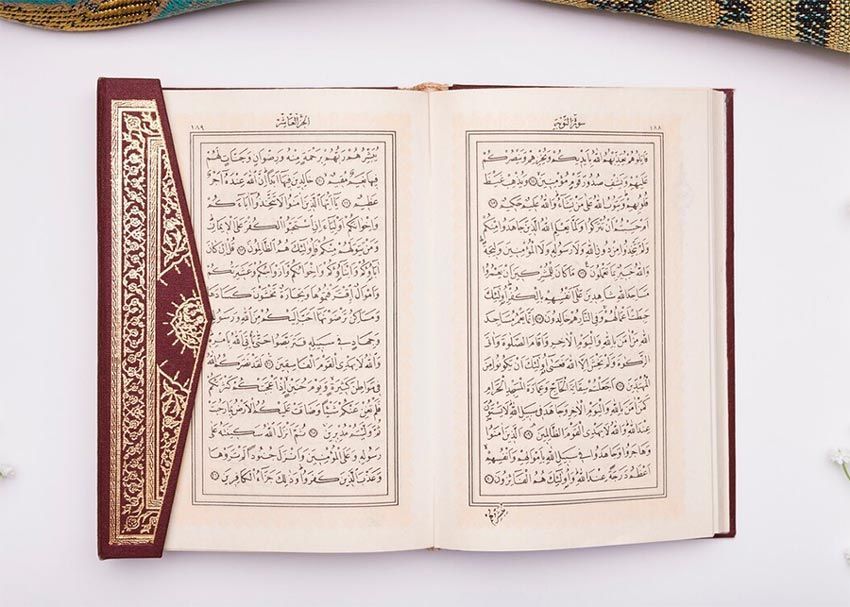 سورة التوبة ١٨٨
قَاتِلُوهُمْ يُعَذِّبْهُمُ اللهُ بِأَيْدِيكُمْ وَيُخْزِهِمْ وَيَنْصُرْكُمْ
عَلَيْهِمْ وَيَشْفِ صُدُورَ قَوْمٍ مُؤْمِنِينَ ۝ وَيُذْهِبْ غَيْظَ
قُلُوبِهِمْ وَيَتُوبُ اللهُ عَلَى مَنْ يَشَاءُ وَاللهُ عَلِيمٌ حَكِيمٌ ۝
أَمْ حَسِبْتُمْ أَنْ تُتْرَكُوا وَلَمَّا يَعْلَمِ اللهُ الَّذِينَ جَاهَدُوا مِنْكُمْ
وَلَمْ يَتَّخِذُوا مِنْ دُونِ اللهِ وَلَا رَسُولِهِ وَلَا الْمُؤْمِنِينَ وَلِيجَةً
وَاللهُ خَبِيرٌ بِمَا تَعْمَلُونَ ۝ مَا كَانَ لِلْمُشْرِكِينَ أَنْ يَعْمُرُوا
مَسَاجِدَ اللهِ شَاهِدِينَ عَلَى أَنْفُسِهِمْ بِالْكُفْرِ أُولَئِكَ
حَبِطَتْ أَعْمَالُهُمْ وَفِي النَّارِ هُمْ خَالِدُونَ ۝ إِنَّمَا يَعْمُرُ مَسَاجِدَ
اللهِ مَنْ آمَنَ بِاللهِ وَالْيَوْمِ الْآخِرِ وَأَقَامَ الصَّلٰوةَ وَآتَى
الزَّكٰوةَ وَلَمْ يَخْشَ إِلَّا اللهَ فَعَسَى أُولَئِكَ أَنْ يَكُونُوا مِنَ
الْمُهْتَدِينَ ۝ أَجَعَلْتُمْ سِقَايَةَ الْحَاجِّ وَعِمَارَةَ الْمَسْجِدِ الْحَرَامِ
كَمَنْ آمَنَ بِاللهِ وَالْيَوْمِ الْآخِرِ وَجَاهَدَ فِي سَبِيلِ اللهِ لَا يَسْتَوُنَ
عِنْدَ اللهِ وَاللهُ لَا يَهْدِي الْقَوْمَ الظَّالِمِينَ ۝ الَّذِينَ آمَنُوا
وَهَاجَرُوا وَجَاهَدُوا فِي سَبِيلِ اللهِ بِأَمْوَالِهِمْ وَأَنْفُسِهِمْ
أَعْظَمُ دَرَجَةً عِنْدَ اللهِ وَأُولَئِكَ هُمُ الْفَائِزُونَ ۝
الجزء العاشر ١٨٩
يُبَشِّرُهُمْ رَبُّهُمْ بِرَحْمَةٍ مِنْهُ وَرِضْوَانٍ وَجَنَّاتٍ لَهُمْ
فِيهَا نَعِيمٌ مُقِيمٌ ۝ خَالِدِينَ فِيهَا أَبَدًا إِنَّ اللهَ عِنْدَهُ أَجْرٌ
عَظِيمٌ ۝ يَا أَيُّهَا الَّذِينَ آمَنُوا لَا تَتَّخِذُوا آبَاءَكُمْ
وَإِخْوَانَكُمْ أَوْلِيَاءَ إِنِ اسْتَحَبُّوا الْكُفْرَ عَلَى الْإِيمَانِ
وَمَنْ يَتَوَلَّهُمْ مِنْكُمْ فَأُولَئِكَ هُمُ الظَّالِمُونَ ۝ قُلْ إِنْ كَانَ
آبَاؤُكُمْ وَأَبْنَاؤُكُمْ وَإِخْوَانُكُمْ وَأَزْوَاجُكُمْ وَعَشِيرَتُكُمْ
وَأَمْوَالٌ اقْتَرَفْتُمُوهَا وَتِجَارَةٌ تَخْشَوْنَ كَسَادَهَا
وَمَسَاكِنُ تَرْضَوْنَهَا أَحَبَّ إِلَيْكُمْ مِنَ اللهِ وَرَسُولِهِ
وَجِهَادٍ فِي سَبِيلِهِ فَتَرَبَّصُوا حَتَّى يَأْتِيَ اللهُ بِأَمْرِهِ
وَاللهُ لَا يَهْدِي الْقَوْمَ الْفَاسِقِينَ ۝ لَقَدْ نَصَرَكُمُ اللهُ
فِي مَوَاطِنَ كَثِيرَةٍ وَيَوْمَ حُنَيْنٍ إِذْ أَعْجَبَتْكُمْ كَثْرَتُكُمْ
فَلَمْ تُغْنِ عَنْكُمْ شَيْئًا وَضَاقَتْ عَلَيْكُمُ الْأَرْضُ بِمَا رَحُبَتْ
ثُمَّ وَلَّيْتُمْ مُدْبِرِينَ ۝ ثُمَّ أَنْزَلَ اللهُ سَكِينَتَهُ عَلَى
رَسُولِهِ وَعَلَى الْمُؤْمِنِينَ وَأَنْزَلَ جُنُودًا لَمْ تَرَوْهَا
وَعَذَّبَ الَّذِينَ كَفَرُوا وَذَلِكَ جَزَاءُ الْكَافِرِينَ ۝